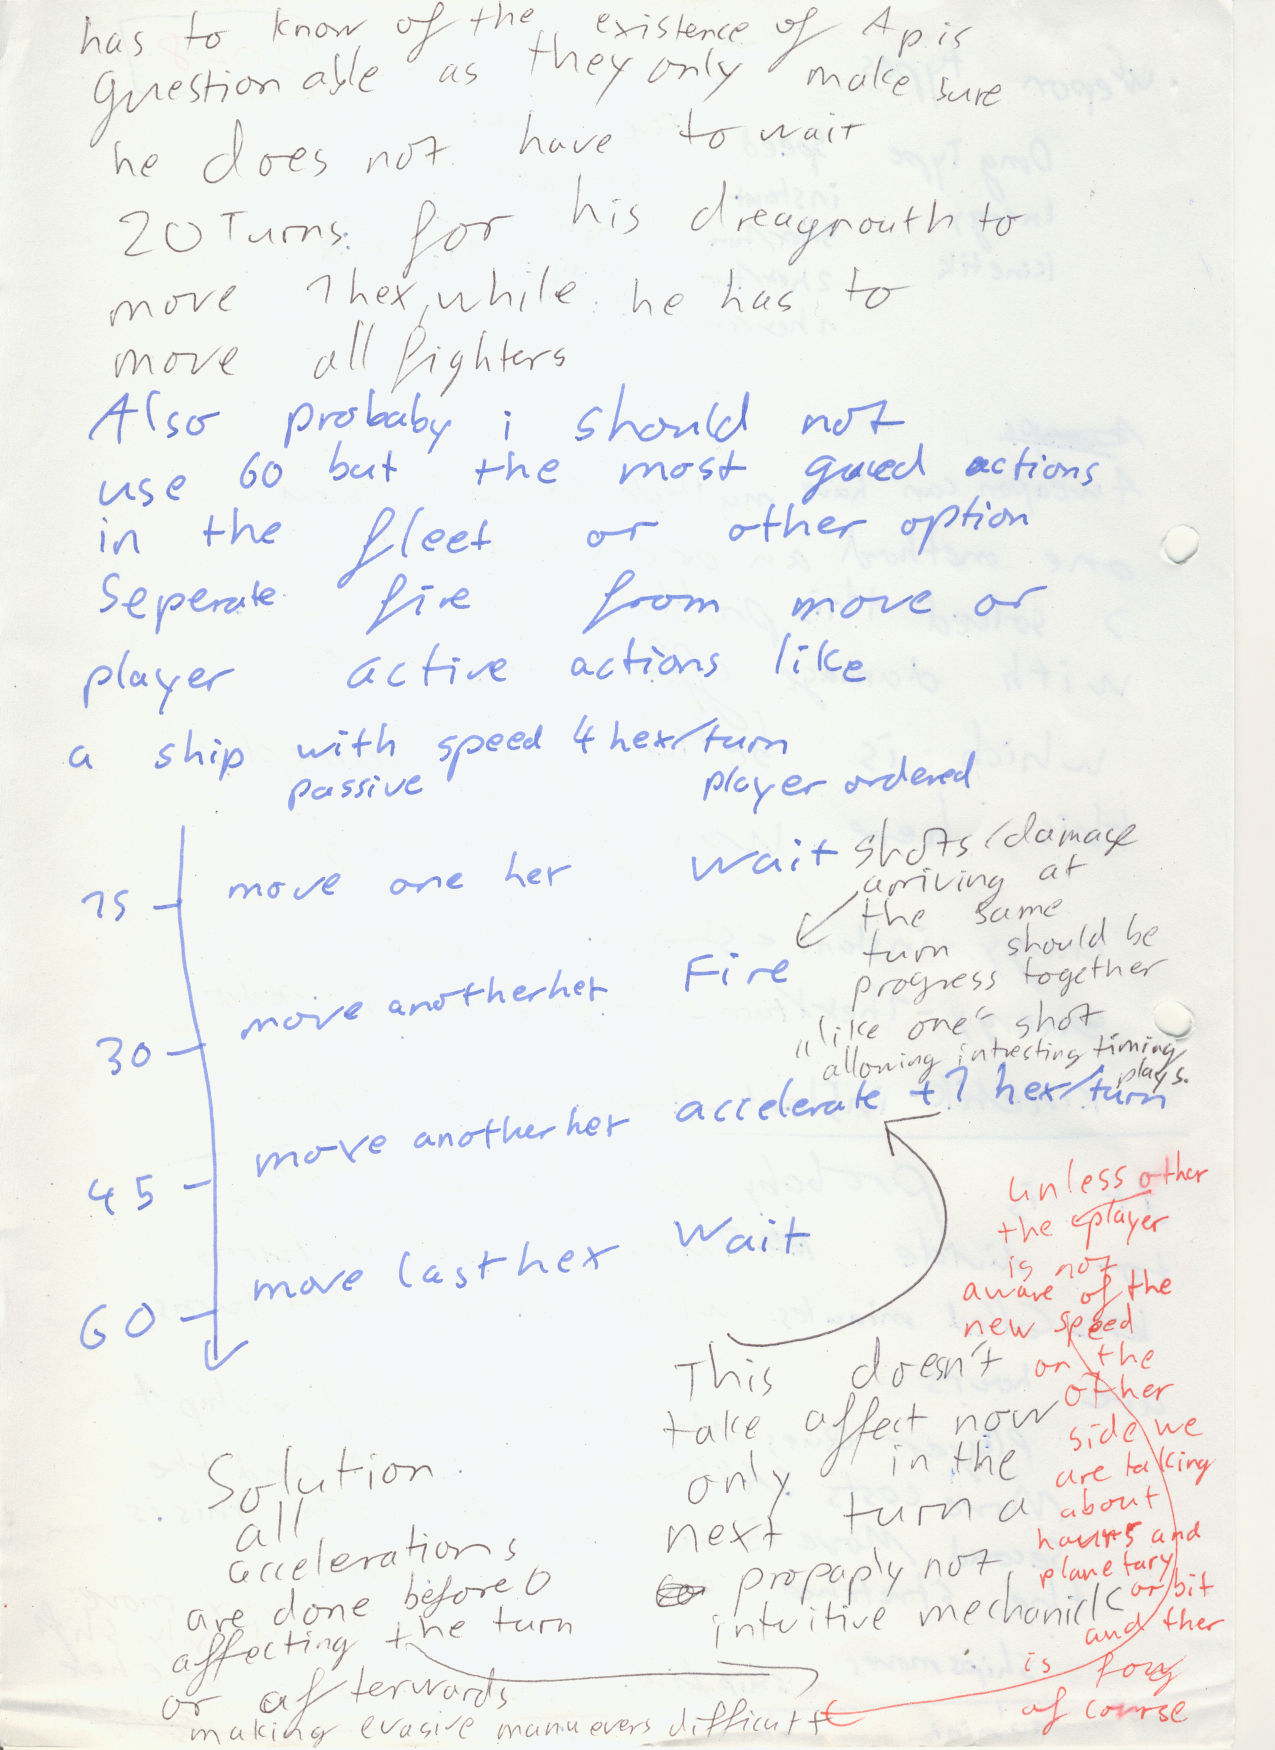 has to know of the existence of Ap is
questionable as they only make sure
he does not have to wait
20 Turns for his dreagnouth to
move 1 hex, while he has to
move all fighters
Also probaby i should not
use 60 but the most gued actions
in the fleet or other option
Seperate fire from move or
player active actions like
a ship with speed 4 hex/turn
passive player ordered
15 move one hex wait
shots/damage
arriving at
the same
turn should be
progress together
"like one" shot
allowing intresting timing
plays.
30 move another hex Fire
45 move another hex accelerate +1 hex/turn
60 move last hex Wait
This doesn't
take affect now
only in the
next turn a
propaply not
intuitive mechanick
unless other
the player
is not
aware of the
new speed
on the
other
side we
are talking
about
hours and
planetary
orbit
and ther
is fog
of course
Solution
all
accelerations
are done before 0
affecting the turn
or afterwards
making evasive manuevers difficult